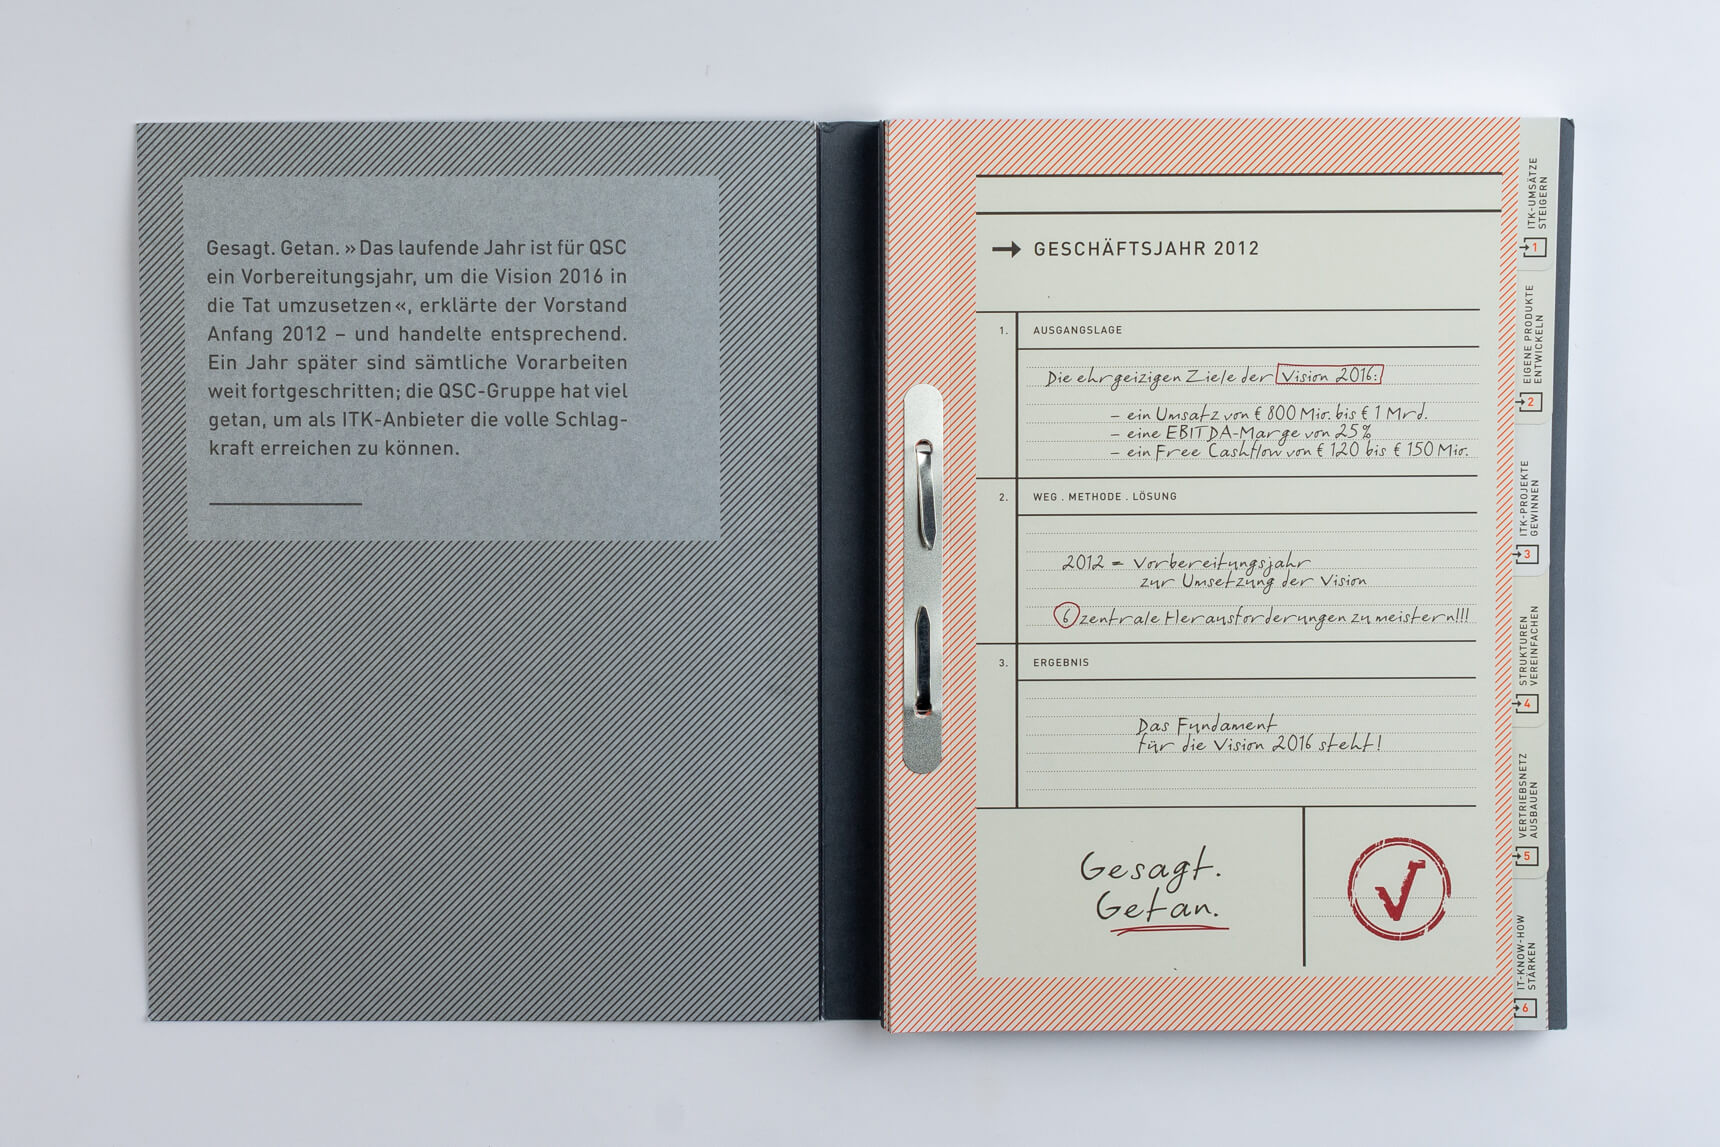 Gesagt. Getan. » Das laufende Jahr ist für QSC
ein Vorbereitungsjahr, um die Vision 2016 in
die Tat umzusetzen«, erklärte der Vorstand
Anfang 2012 – und handelte entsprechend.
Ein Jahr später sind sämtliche Vorarbeiten
weit fortgeschritten; die QSC-Gruppe hat viel
getan, um als ITK-Anbieter die volle Schlag-
kraft erreichen zu können.
→ GESCHÄFTSJAHR 2012
1. AUSGANGSLAGE
Die ehrgeizigen Ziele der Vision 2016:
– ein Umsatz von € 800 Mio. bis € 1 Mrd.
– eine EBITDA-Marge von 25%
– ein Free Cashflow von € 120 bis € 150 Mio.
2. WEG . METHODE . LÖSUNG
2012 = Vorbereitungsjahr
zur Umsetzung der Vision
6 zentrale Herausforderungen zu meistern!!!
3. ERGEBNIS
Das Fundament
für die Vision 2016 steht!
Gesagt.
Getan.
ITK-UMSÄTZE
STEIGERN
1
EIGENE PRODUKTE
ENTWICKELN
2
ITK-PROJEKTE
GEWINNEN
3
STRUKTUREN
VEREINFACHEN
4
VERTRIEBSNETZ
AUSBAUEN
5
IT-KNOW-HOW
STÄRKEN
6